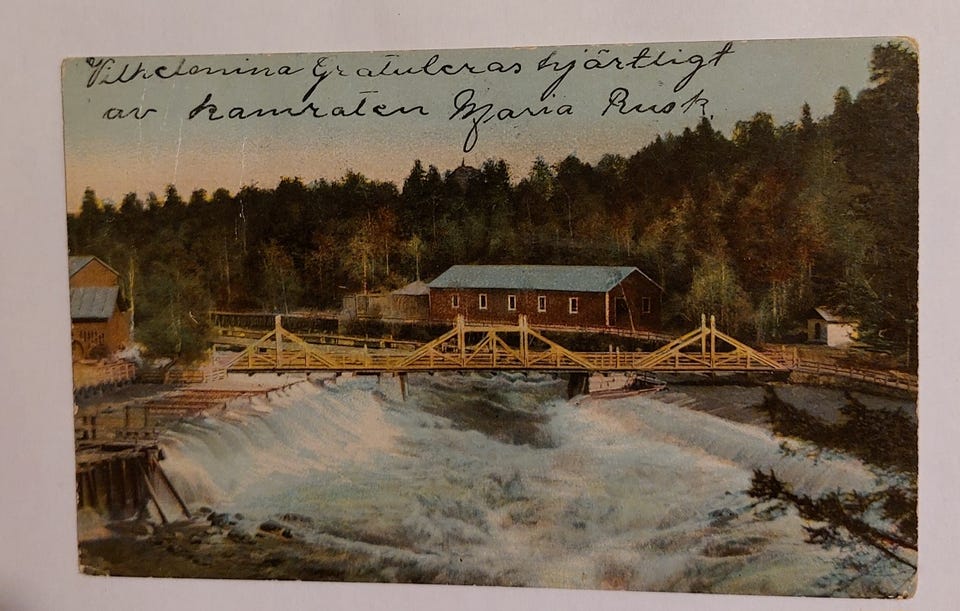 Vilhelmina Gratuleras hjärtligt
av kamraten Maria Rusk.